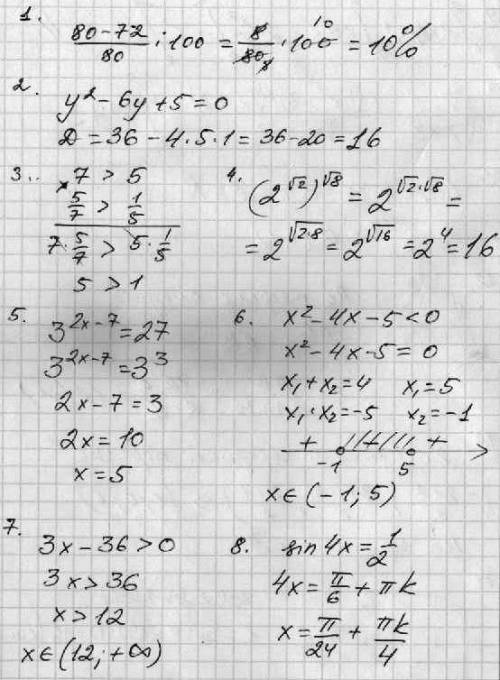 1.
(80-72)/80 · 100 = 8/80 · 100 = 10%
8 10
2.
y² - 6y + 5 = 0
D = 36 - 4·5·1 = 36-20 = 16
3.
7 > 5
× 5/7 > 1/5
7·5/7 > 5·1/5
5 > 1
4.
(2^√2)^√8 = 2^(√2·√8) =
= 2^√(2·8) = 2^√16 = 2⁴ = 16
5.
3^(2x-7) = 27
3^(2x-7) = 3³
2x - 7 = 3
2x = 10
x = 5
6.
x² - 4x - 5 < 0
x² - 4x - 5 = 0
x₁ + x₂ = 4 x₁ = 5
x₁·x₂ = -5 x₂ = -1
+ + +
-1 5
x ∈ (-1; 5)
7.
3x - 36 > 0
3x > 36
x > 12
x ∈ (12; +∞)
8.
sin 4x = 1/2
4x = π/6 + πk
x = π/24 + πk/4